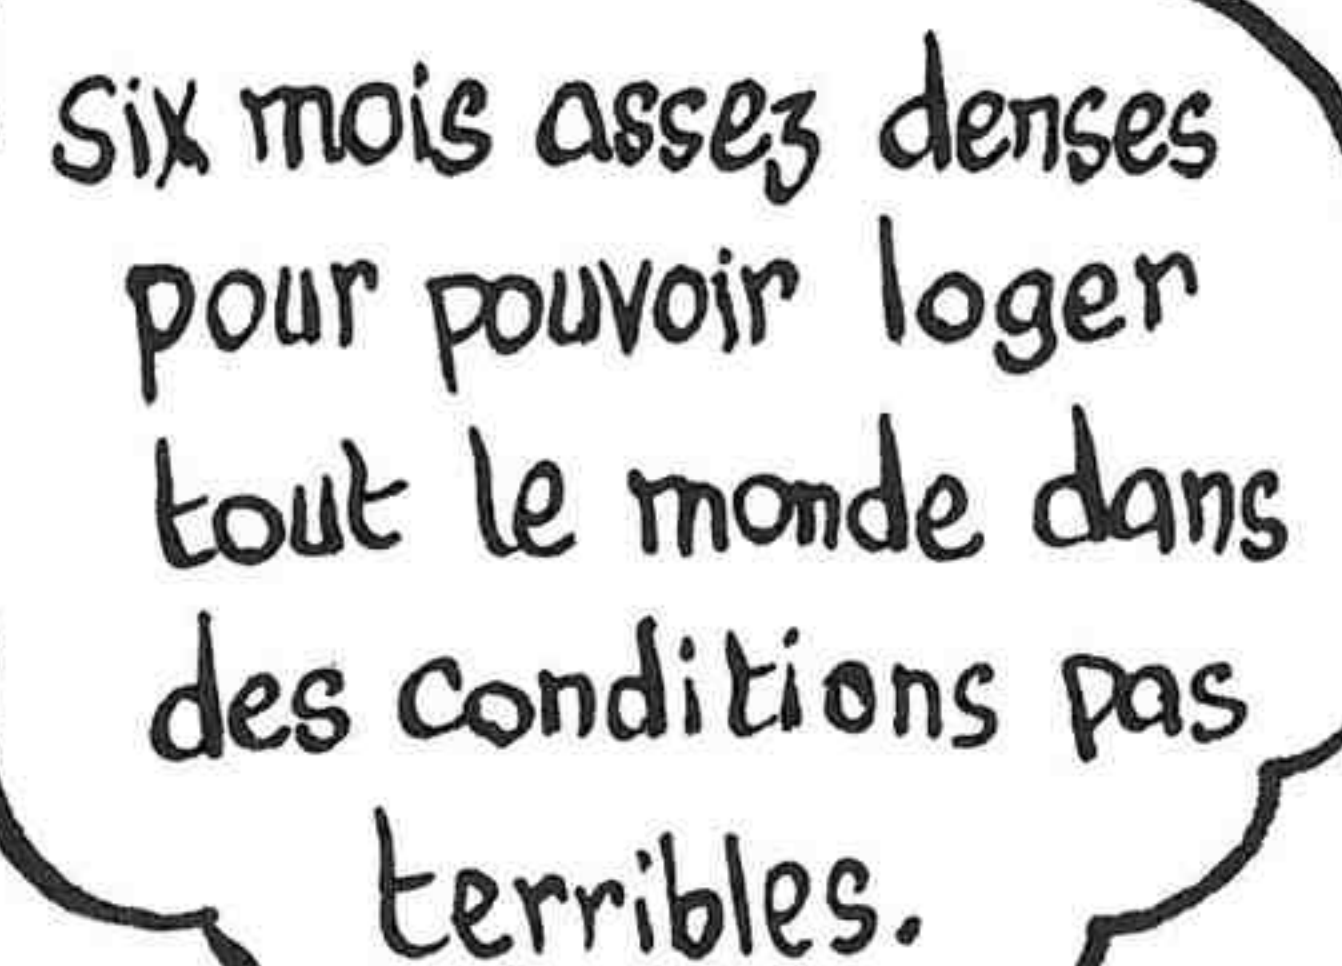 Six mois assez denses
pour pouvoir loger
tout le monde dans
des conditions pas
terribles.